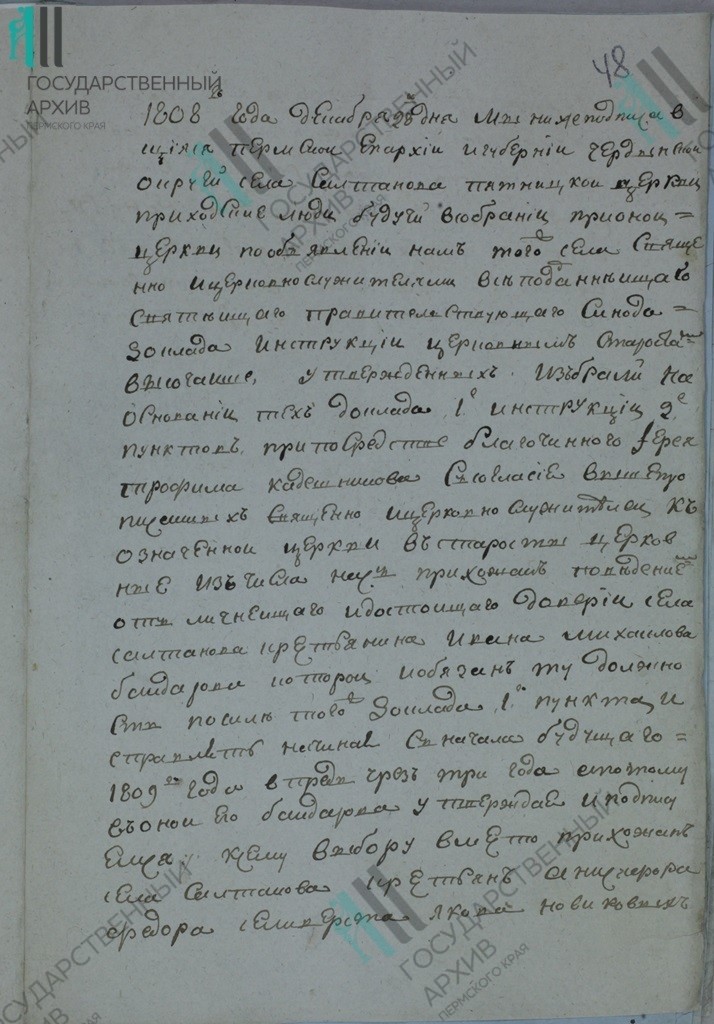 48
ГОСУДАРСТВЕННЫЙ
АРХИВ
ПЕРМСКОГО КРАЯ
1808 года декабря дня мы нижеподписав
шияся пермской епархіи и губерніи чердынской
округи села Салтанова пятницкой церкви
приходские люди будучи в собраніи при оной =
церкви по объявленіи намъ того села Свяще
нно и церковнослужителями всеподданнейшаго
Святейшаго правительствующаго Синода =
доклада инструкціи церковнымъ старостам
высочайше, утвержденныхъ. избрали на
основаніи техъ доклада 1го инструкціи 2го
пунктовъ, при посредстве благочинного Іерея
трофима кадешникова с согласіе вышепро
писанныхъ священно и церковно служителей къ
означенной церкви въ старосты церков
ные изъ числа насъ прихожанъ поведение
отличнейшаго и достойщаго доверіи села
салтанова крестьянина ивана михайлова
бандарова которой и обязанъ ту должно
сть по силе того доклада 1го пункта, и
справлять начиная с начала будущаго =
1809го года впредь чрезъ три года а потому
въ оной его бандарова утверждае и подпису
емся, к сему выбору вместо прихожанъ
села Салтанова крестьянъ
федора селиверста Якова новиковыхъ